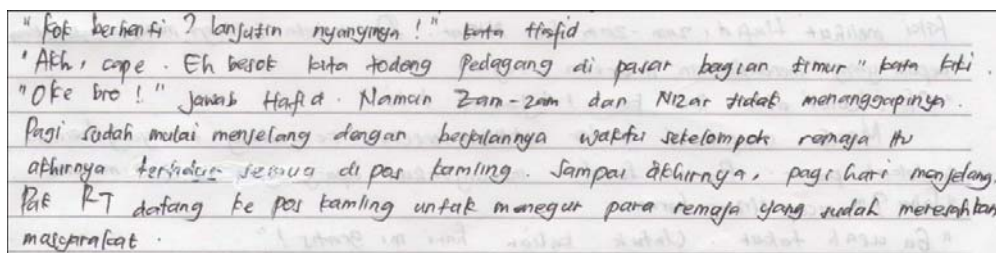 "Kok berhenti ? lanjutin nyanyinya !" kata Hafid
"Akh, cape . Eh besok kita todong pedagang di pasar bagian timur" kata kiki .
"Oke bro !" jawab Hafid . Namun Zam-zam dan Nizar tidak menanggapinya .
Pagi sudah mulai menjelang dengan berjalannya waktu sekelompok remaja itu
akhirnya tertidur semua di pos kamling . Sampai akhirnya, pagi hari menjelang.
Pak RT datang ke pos kamling untuk menegur para remaja yang sudah meresahkan
masyarakat .